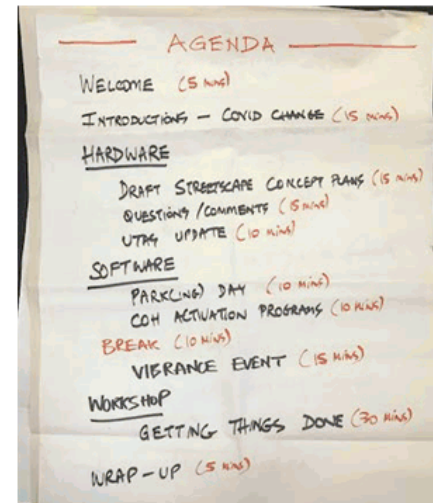 AGENDA
WELCOME (5 MINS)
INTRODUCTIONS – COVID CHANGE (15 MINS)
HARDWARE
DRAFT STREETSCAPE CONCEPT PLANS (15 MINS)
QUESTIONS/COMMENTS (15 MINS)
UTAS UPDATE (10 MINS)
SOFTWARE
PARK(ING) DAY (10 MINS)
COH ACTIVATION PROGRAMS (10 MINS)
BREAK (10 MINS)
VIBRANCE EVENT (15 MINS)
WORKSHOP
GETTING THINGS DONE (30 MINS)
WRAP-UP (5 MINS)